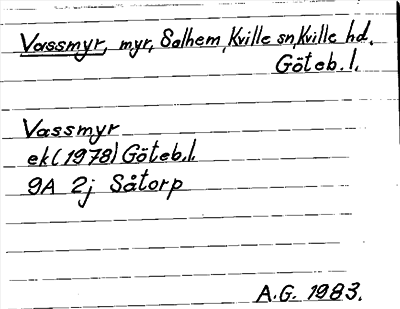 Vassmyr, myr, Solhem, Kville sn, Kville hd.
Göteb. l.
Vassmyr
ek (1978) Göteb. l.
9A 2j Såtorp
A.G. 1983.